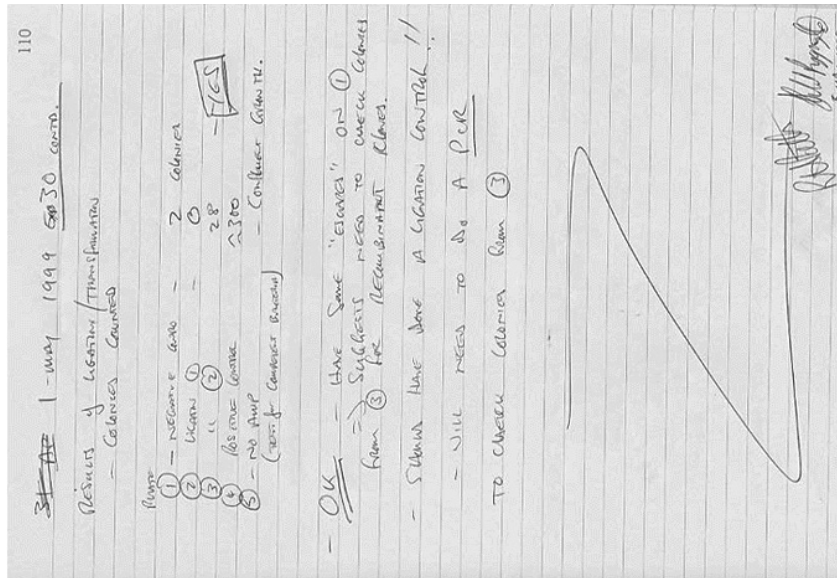 110
1-May 1999 Exp 30 contd.
Results of Ligation/Transformation
- Colonies Counted
Plate
① - Negative Control - 2 colonies
② Ligation ① - 0
③ " ② 28 - YES
④ Positive Control ~300
⑤ - No Amp - Confluent Growth.
(Test for Competent Bacteria)
- OK - Have some "escapes" on ①
→ Suggests need to check colonies
from ③ for recombinant clones.
- Should have done a ligation control!!
- Will need to do a PCR
to check colonies from ③